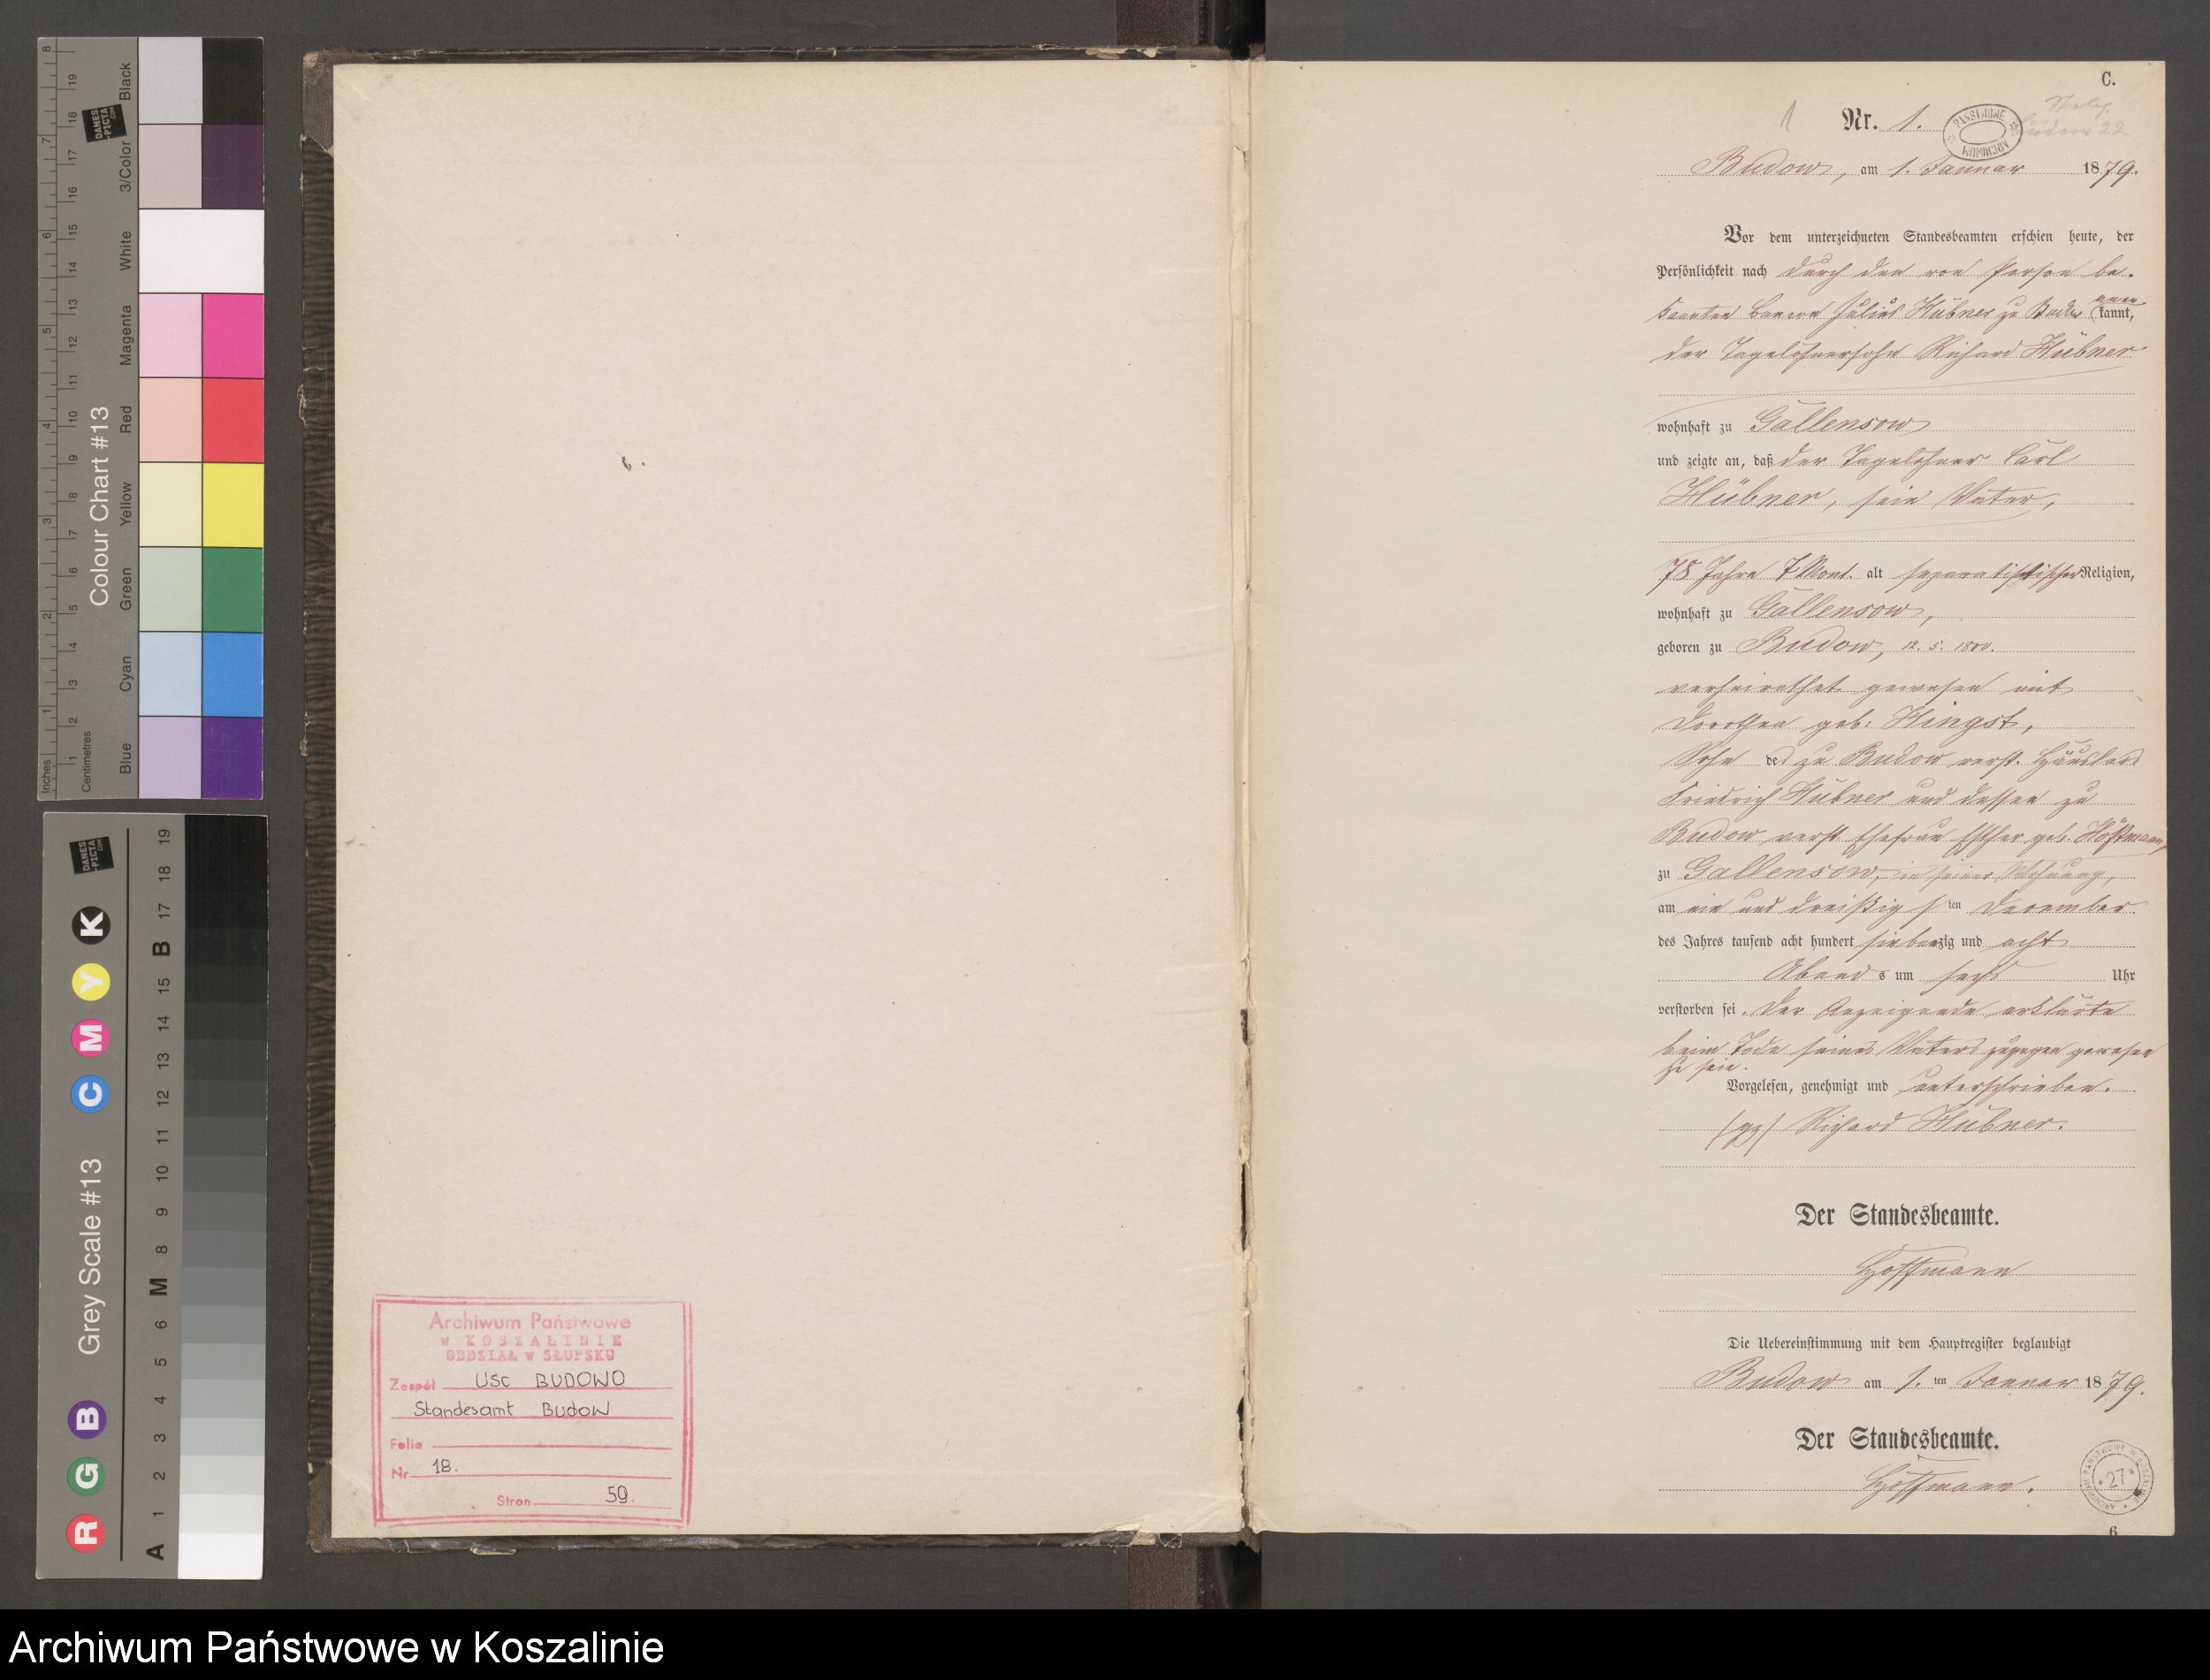 Inches
Centimetres
Colour Chart #13
Blue
Cyan
Green
Yellow
Red
Magenta
White
3/Color
Black
DANES
-PICTA
.COM
Grey Scale #13
R G B C M Y K
A 1 2 3 4 5 6 M 8 9 10 11 12 13 14 15 B 17 18 19
Archiwum Państwowe
w KOSZALINIE
ODDZIAŁ w SŁUPSKU
Zespół USC BUDOWO
Standesamt Budow
Folio
Nr 18.
Stron 59.
C.
1
Nr. 1.
PAŃSTWOWE ARCHIWUM
Budow 22
Budow, am 1. Januar 1879.
Vor dem unterzeichneten Standesbeamten erschien heute, der
Persönlichkeit nach durch den von Person be-
kannten Julius Hübner zu Budow kannt,
der Tagelöhnersohn Richard Hübner
wohnhaft zu Gallensow
und zeigte an, daß der Tagelöhner Carl
Hübner, sein Vater,
78 Jahre 7 Mont. alt separatistischer Religion,
wohnhaft zu Gallensow,
geboren zu Budow, 12. 5. 1800.
verheirathet gewesen mit
Dorothea geb. Hingst,
Sohn des zu Budow verst. Häuslers
Friedrich Hübner und dessen zu
Budow verst Ehefrau Esther geb.
zu Gallensow, in seiner Wohnung,
am ein und dreißigsten December
des Jahres tausend acht hundert siebenzig und acht
Abends um sechs Uhr
verstorben sei. Der Anzeigende erklärte
beim Tode seines Vaters zugegen gewesen
zu sein.
Vorgelesen, genehmigt und unterschrieben.
(gz) Richard Hübner.
Der Standesbeamte.
Hoffmann
Die Uebereinstimmung mit dem Hauptregister beglaubigt
Budow am 1. ten Januar 1879.
Der Standesbeamte.
Hoffmann.
27
6
Archiwum Państwowe w Koszalinie